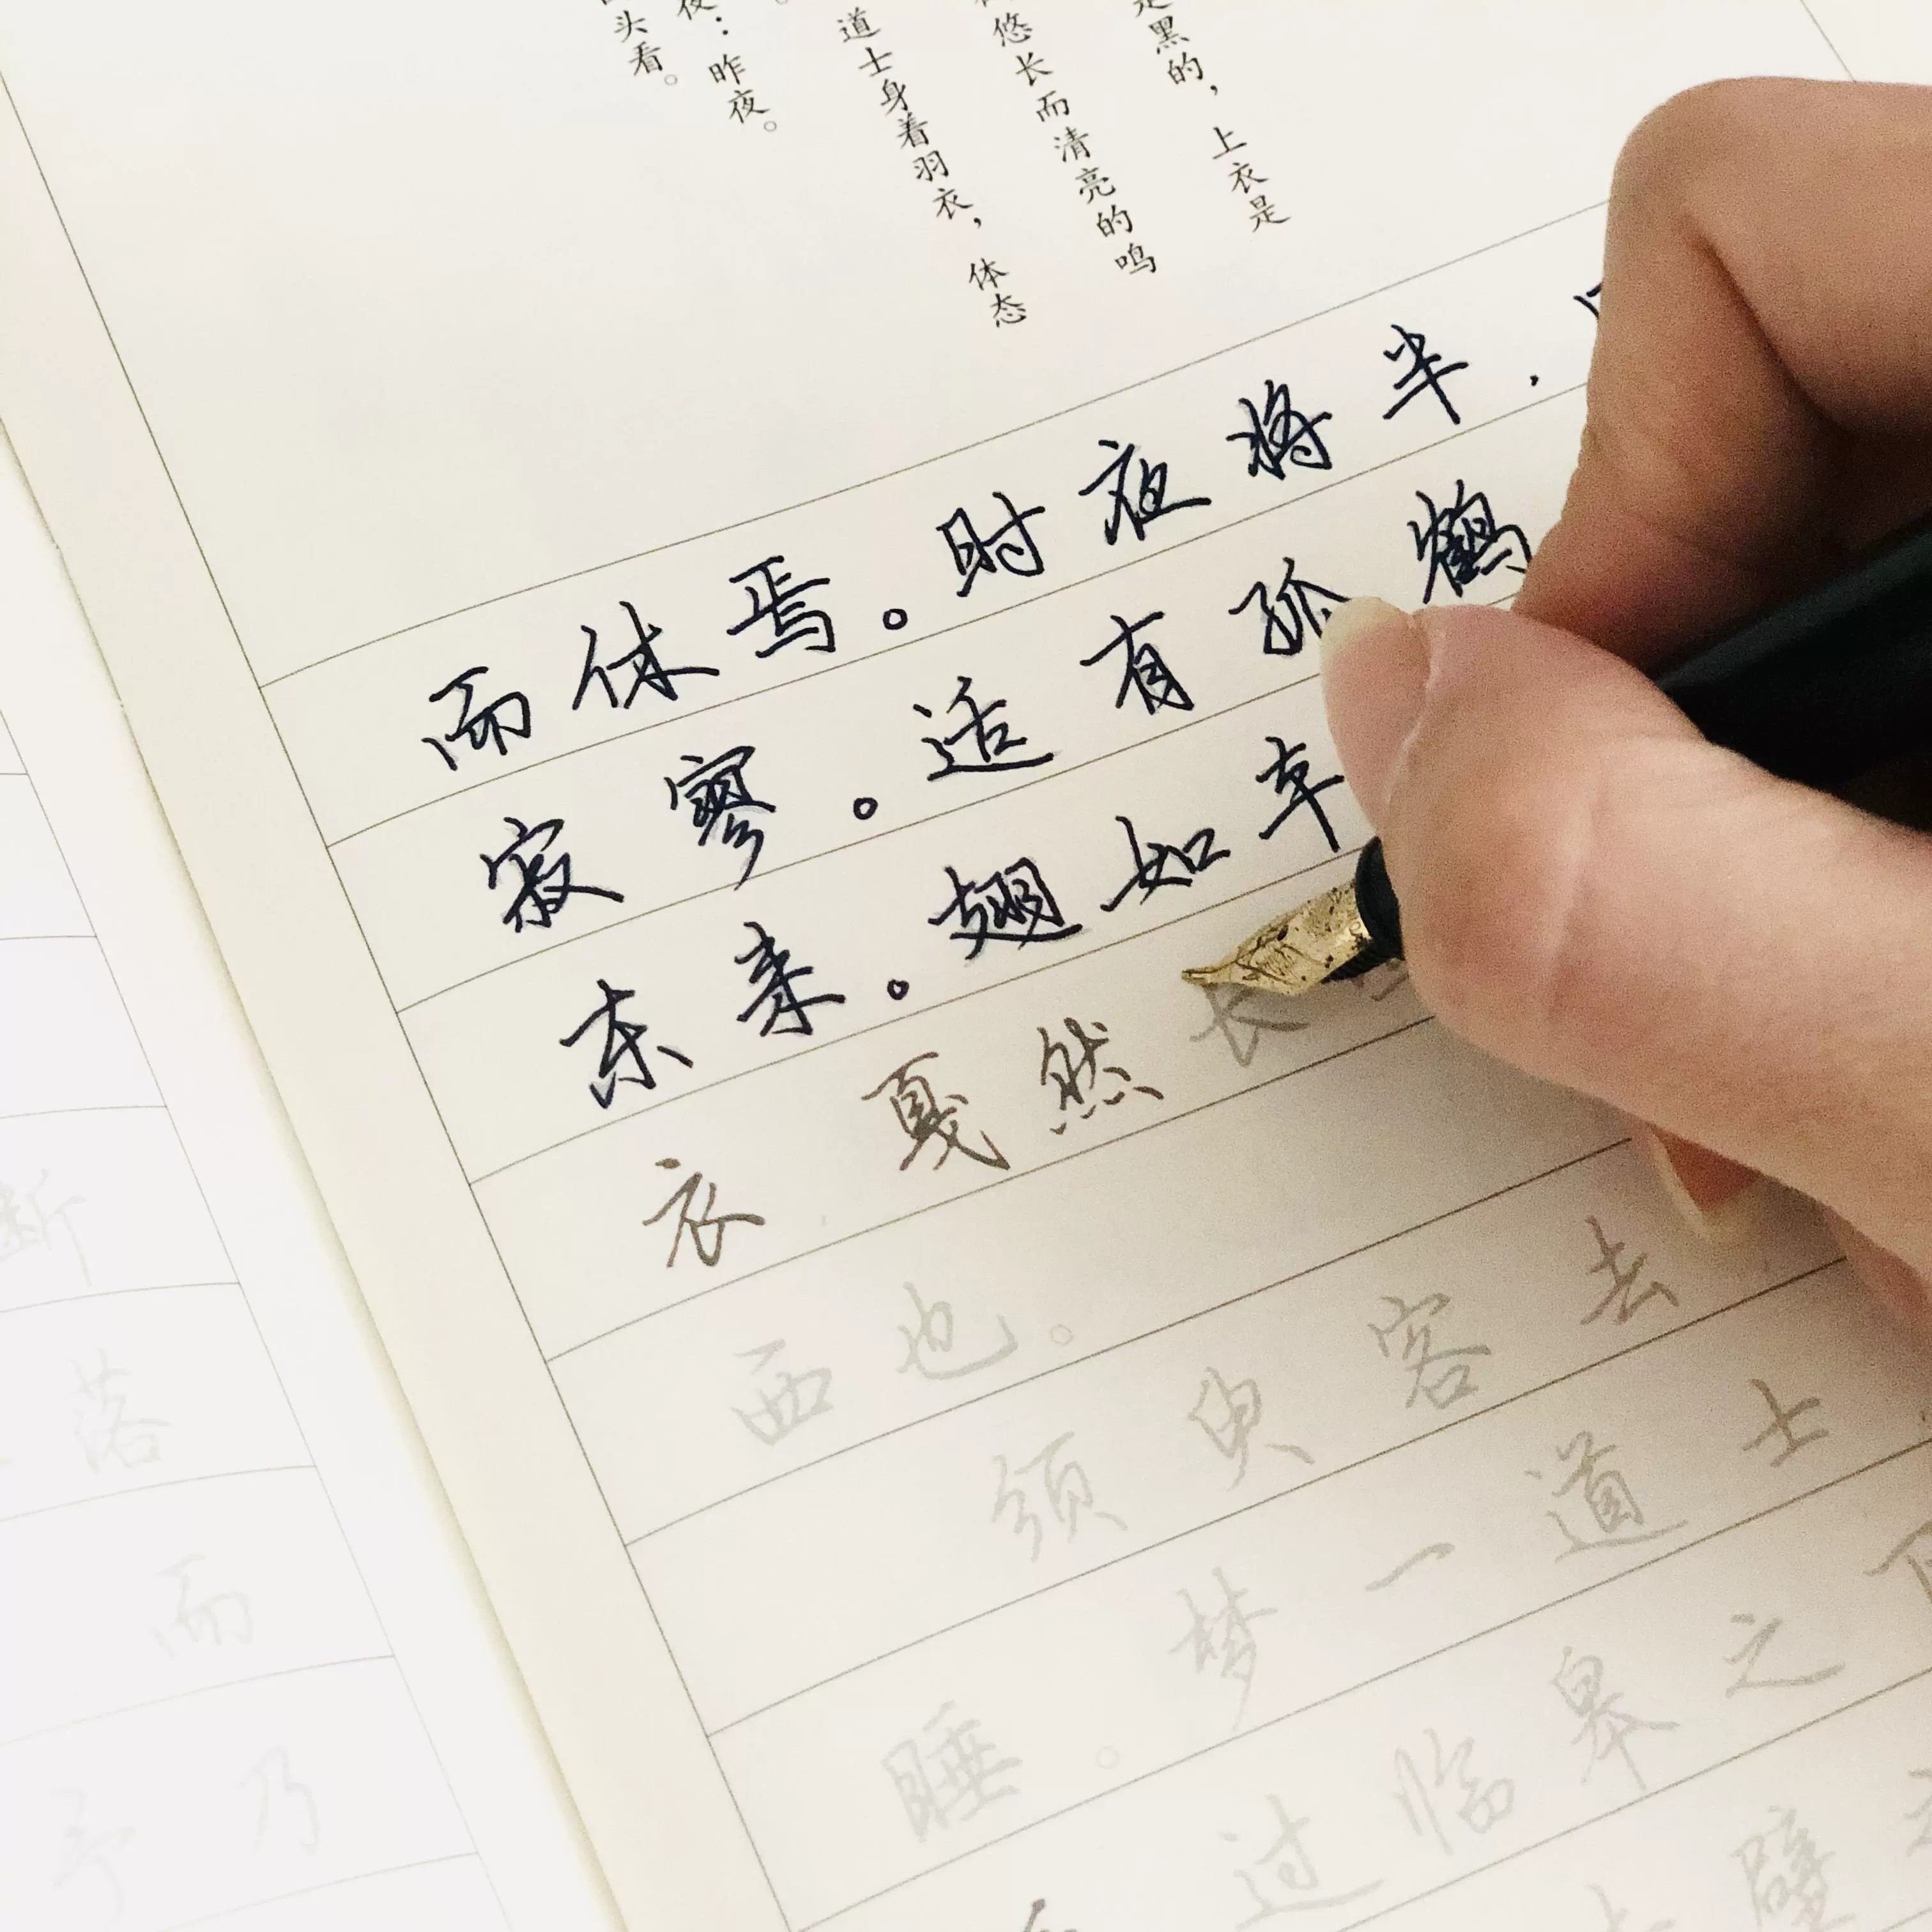 是黑的，上衣是
悠长而清亮的鸣
道士身着羽衣，体态
夜：昨夜。
头看。
而休焉。时夜将半，
寂寥。适有孤鹤
东来。翅如车
衣 戛然长
西也。
须臾客去
睡。梦一道士
过临皋之下
壁
断
落
而
予乃